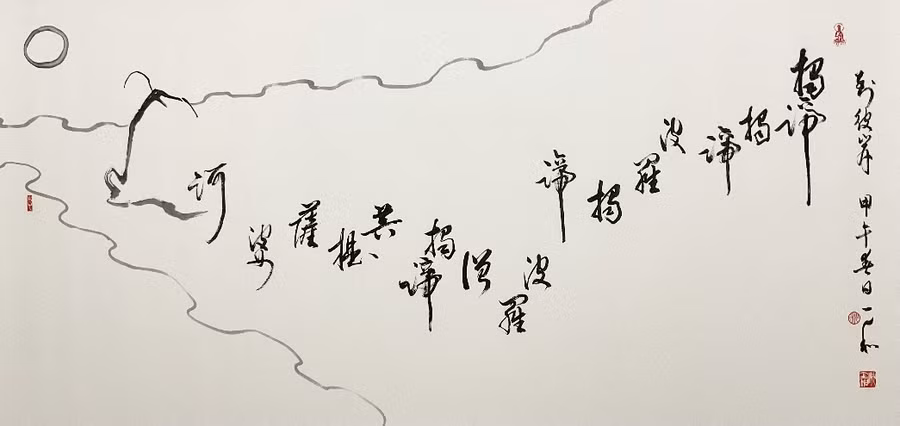 到彼岸 甲午春日
揭諦揭諦波羅揭諦波羅僧揭諦菩提薩婆訶